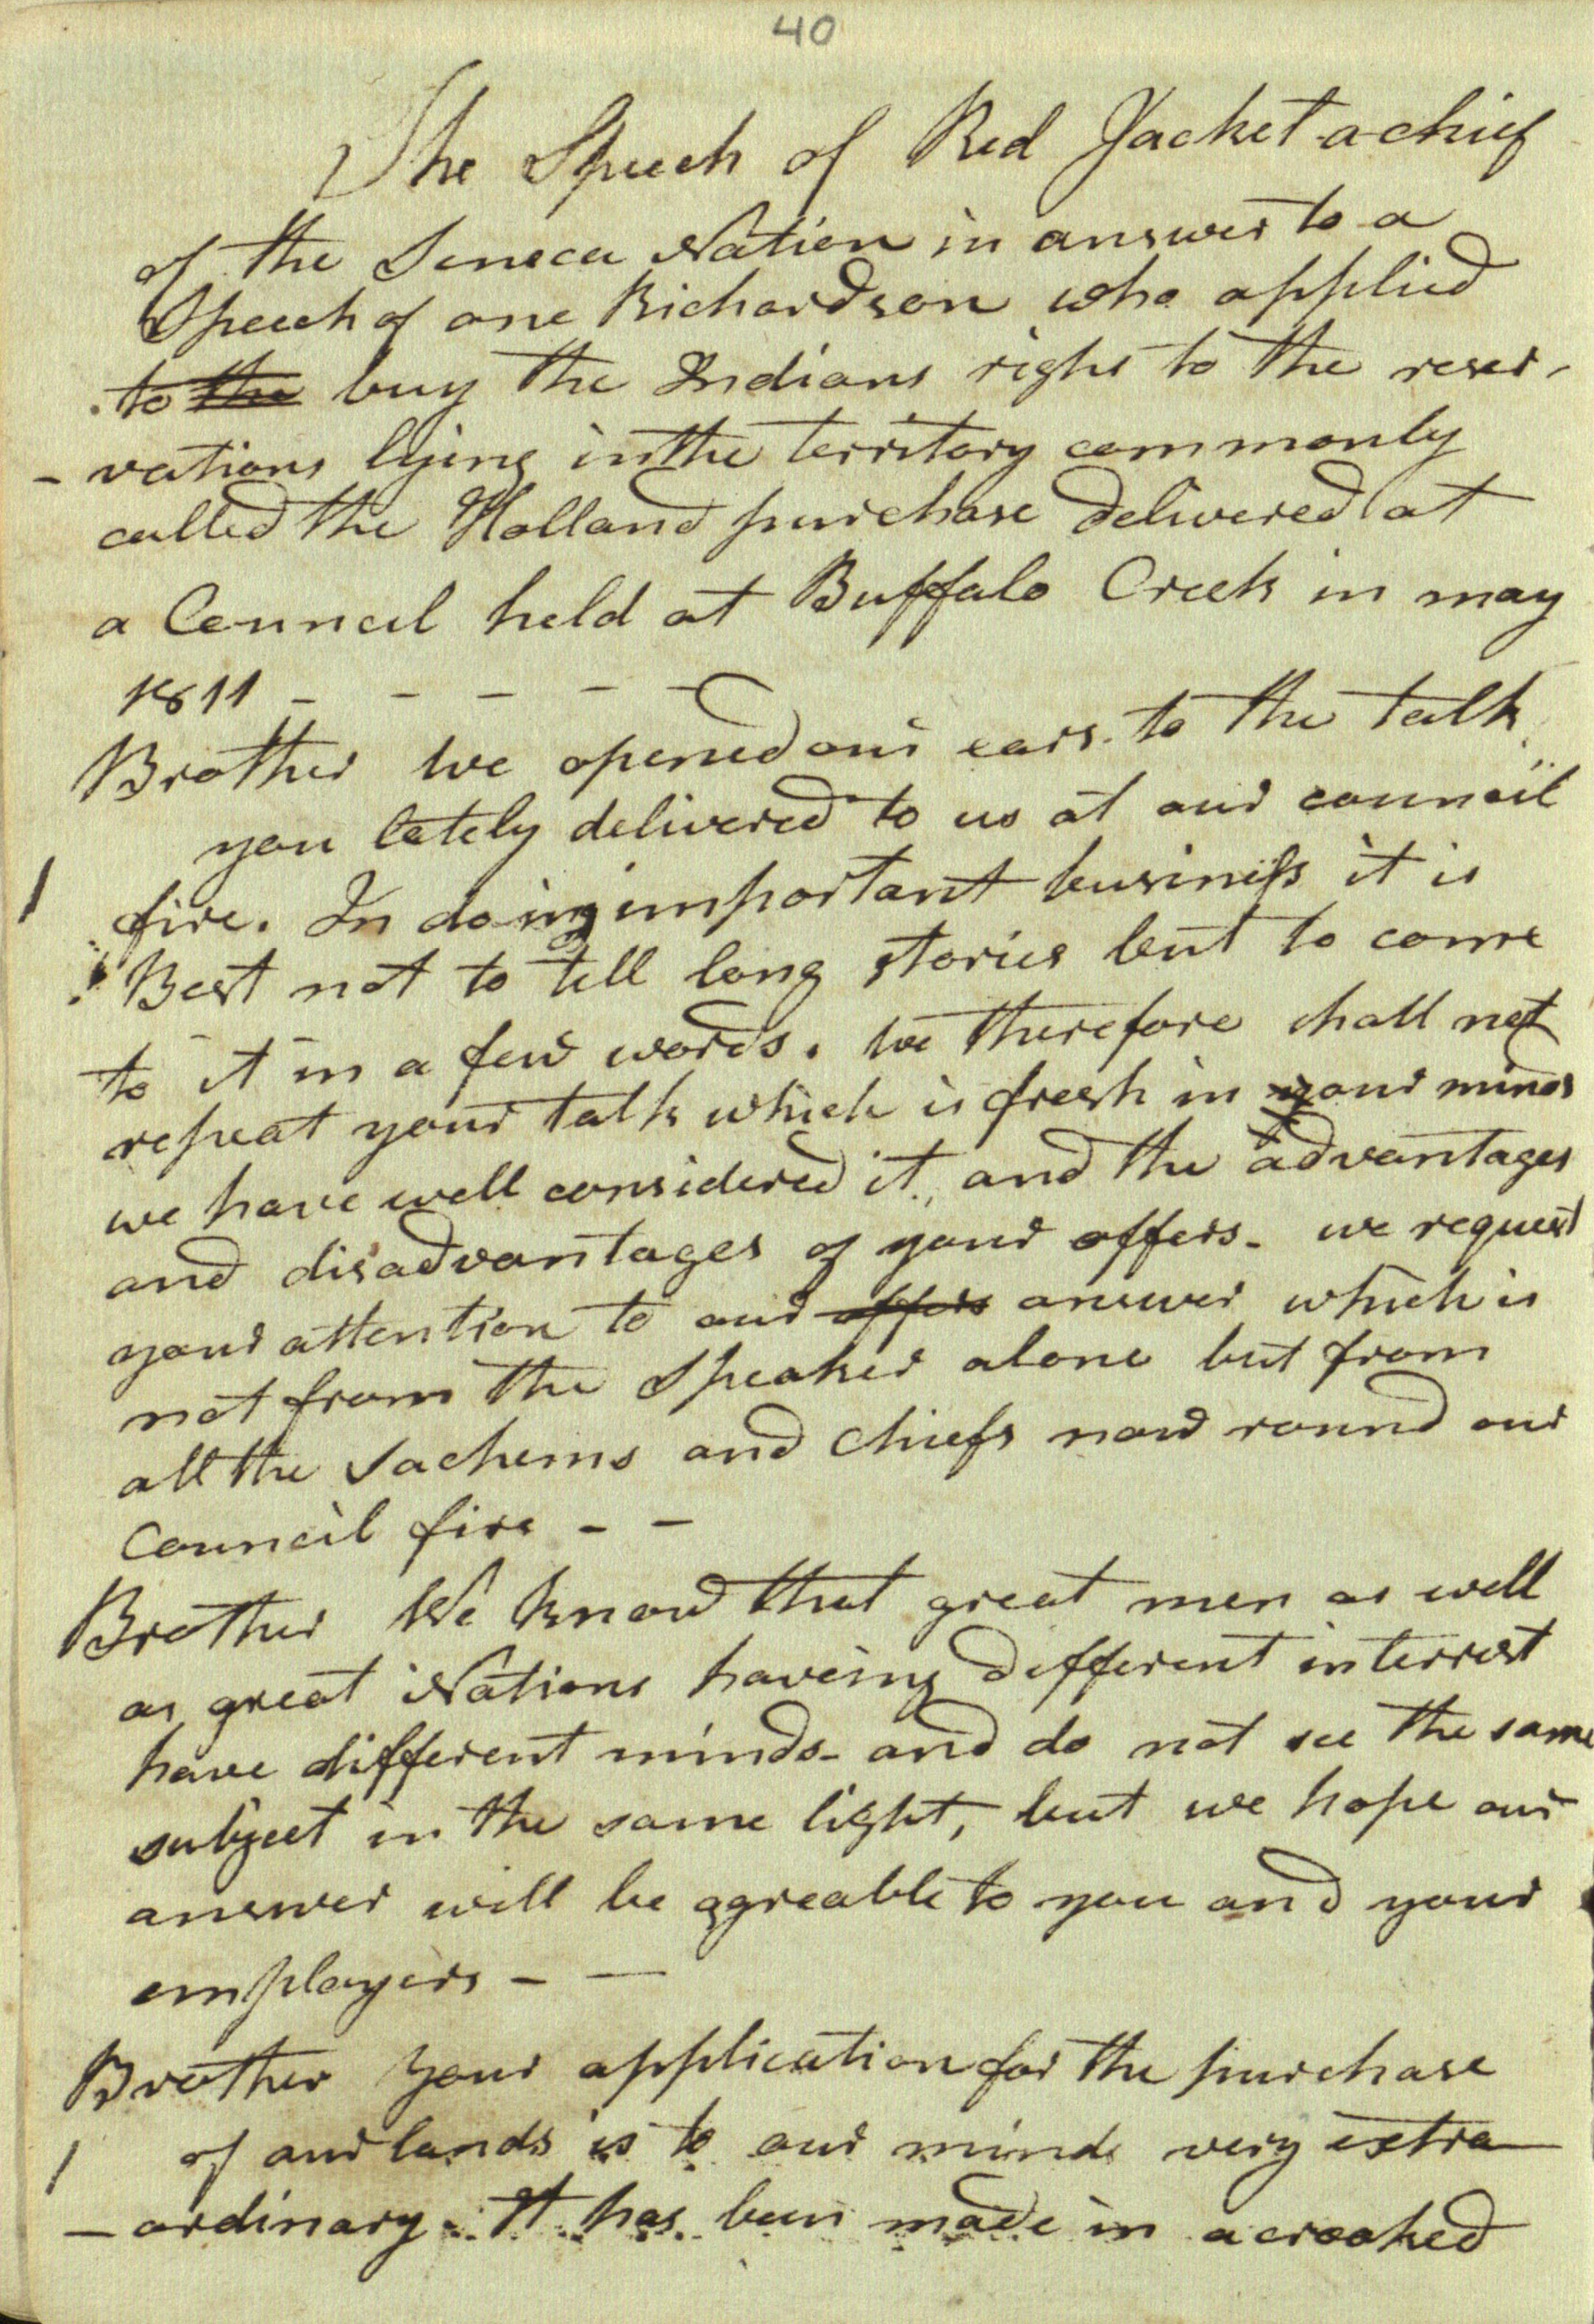 40
The Speech of Red Jacket a chief
of the Seneca Nation in answer to a
Speech of one Richardson who applied
to the buy the Indians right to the reser-
- vations lying in the territory commonly
called the Holland purchase delivered at
a Council held at Buffalo Creek in may
1811 - - - - -
Brother We opened our ears to the talk
you lately delivered to us at our council
fire. In doing important business it is
Best not to tell long stories but to come
to it in a few words. We therefore shall not
repeat your talk which is fresh in your minds
we have well considered it, and the advantages
and disadvantages of your offers - we request
your attention to our offers answer which is
not from the Speaker alone but from
all the Sachems and Chiefs now round our
Council fire - -
Brother We know that great men as well
as great Nations haveing different interrest
have different minds - and do not see the same
subject in the same light, but we hope our
answer will be agreable to you and your
employers - -
Brother Your application for the purchase
of our lands is to our minds very extra
- ordinary. It has been made in a crooked